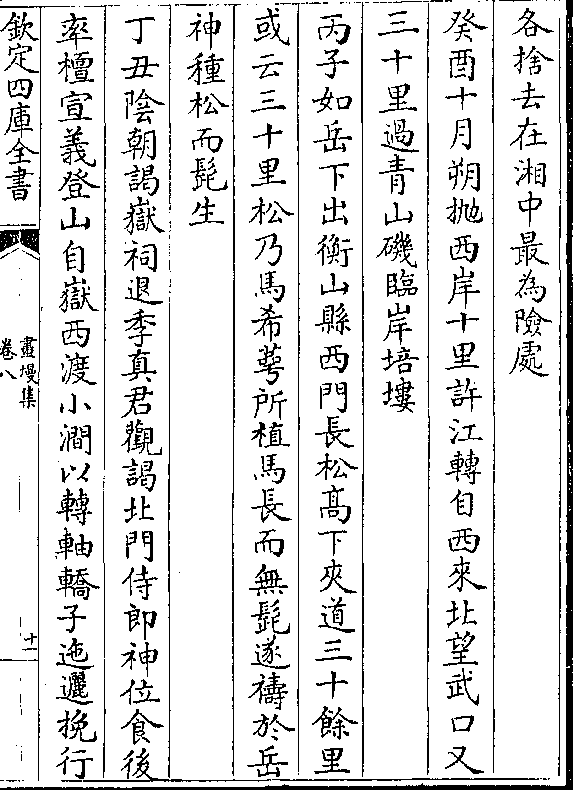 各捨去在湘中最為險處
癸酉十月朔抛西岸十里許江轉自西來北望武口又
三十里過青山磯臨岸培塿
丙子如岳下出衡山縣西門長松髙下夾道三十餘里
或云三十里松乃馬希蕚所植馬長而無髭遂禱於岳
神種松而髭生
丁丑陰朝謁嶽祠退季真君觀謁北門侍郎神位食後
率檀宣義登山自嶽西渡小澗以轉軸轎子迤邐挽行
欽定四庫全書
畫墁集
卷八
十一